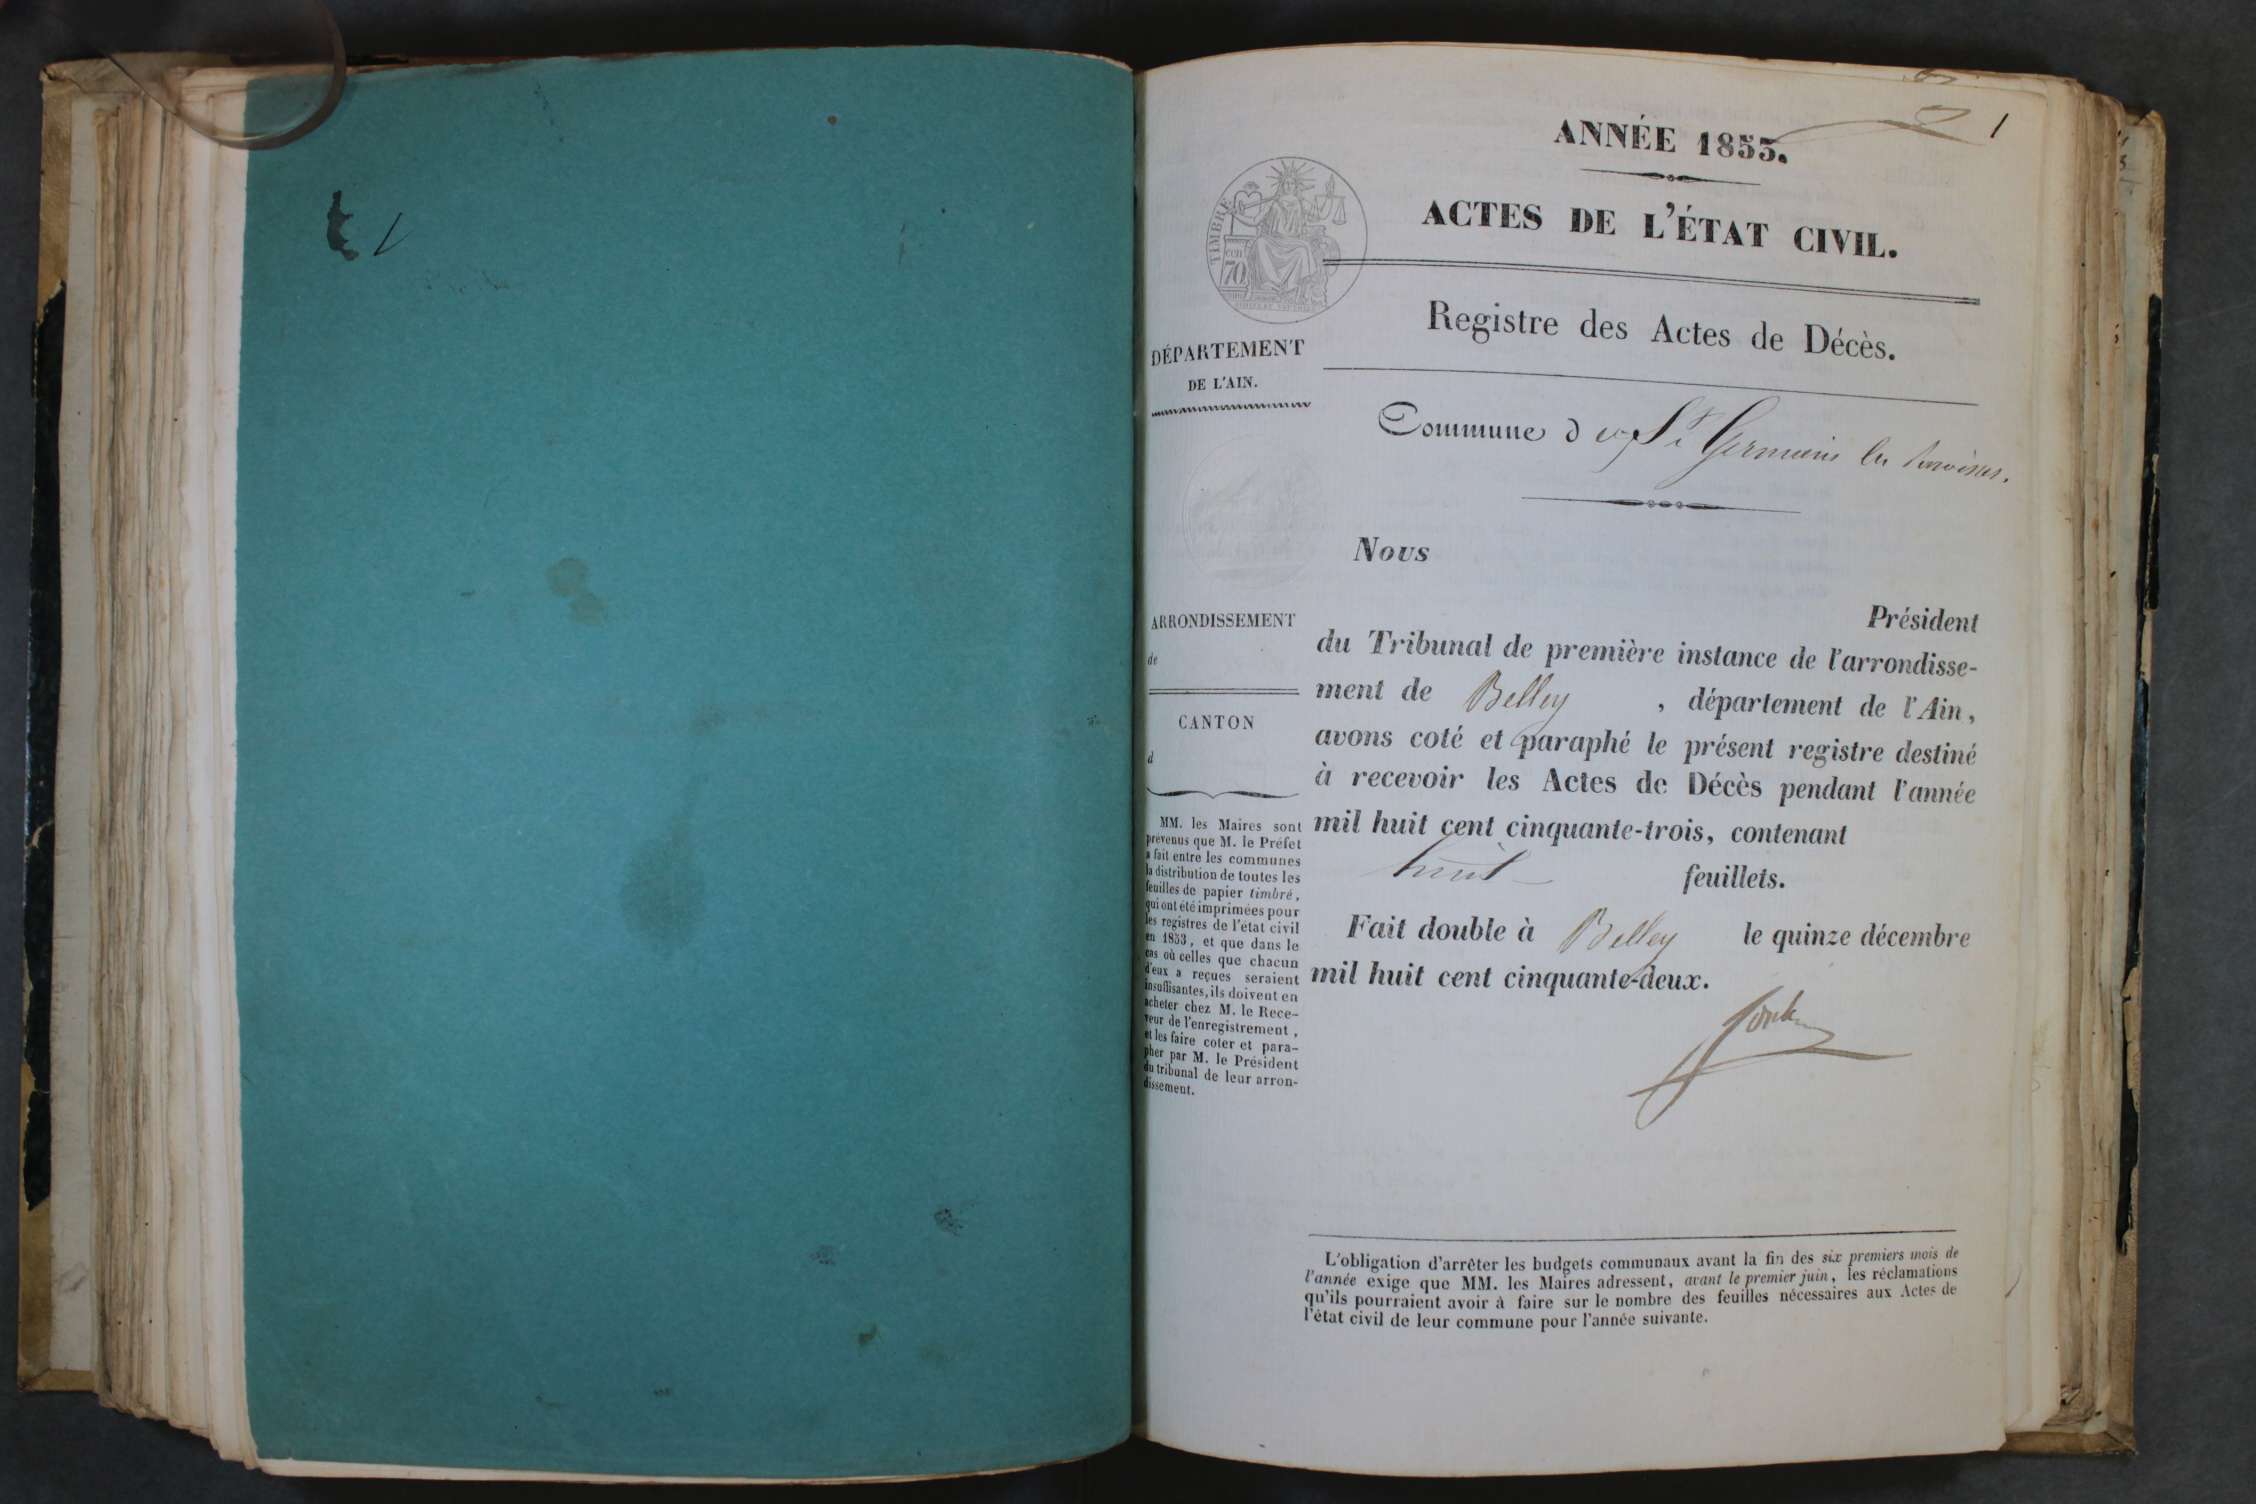 1
ANNÉE 1853.
ACTES DE L'ÉTAT CIVIL.
TIMBRE
70
Registre des Actes de Décès.
DÉPARTEMENT
DE L'AIN.
Commune de St Germain les Paroisses.
Nous
Président
du Tribunal de première instance de l'arrondisse-
ment de Belley , département de l'Ain,
avons coté et paraphé le présent registre destiné
à recevoir les Actes de Décès pendant l'année
mil huit cent cinquante-trois, contenant
huit feuillets.
Fait double à Belley le quinze décembre
mil huit cent cinquante-deux.
ARRONDISSEMENT
de
CANTON
d
MM. les Maires sont
prévenus que M. le Préfet
a fait entre les communes
la distribution de toutes les
feuilles de papier timbré,
qui ont été imprimées pour
les registres de l'état civil
en 1853, et que dans le
cas où celles que chacun
d'eux a reçues seraient
insuffisantes, ils doivent en
acheter chez M. le Rece-
veur de l'enregistrement,
et les faire coter et para-
pher par M. le Président
du tribunal de leur arron-
dissement.
L'obligation d'arrêter les budgets communaux avant la fin des six premiers mois de
l'année exige que MM. les Maires adressent, avant le premier juin, les réclamations
qu'ils pourraient avoir à faire sur le nombre des feuilles nécessaires aux Actes de
l'état civil de leur commune pour l'année suivante.